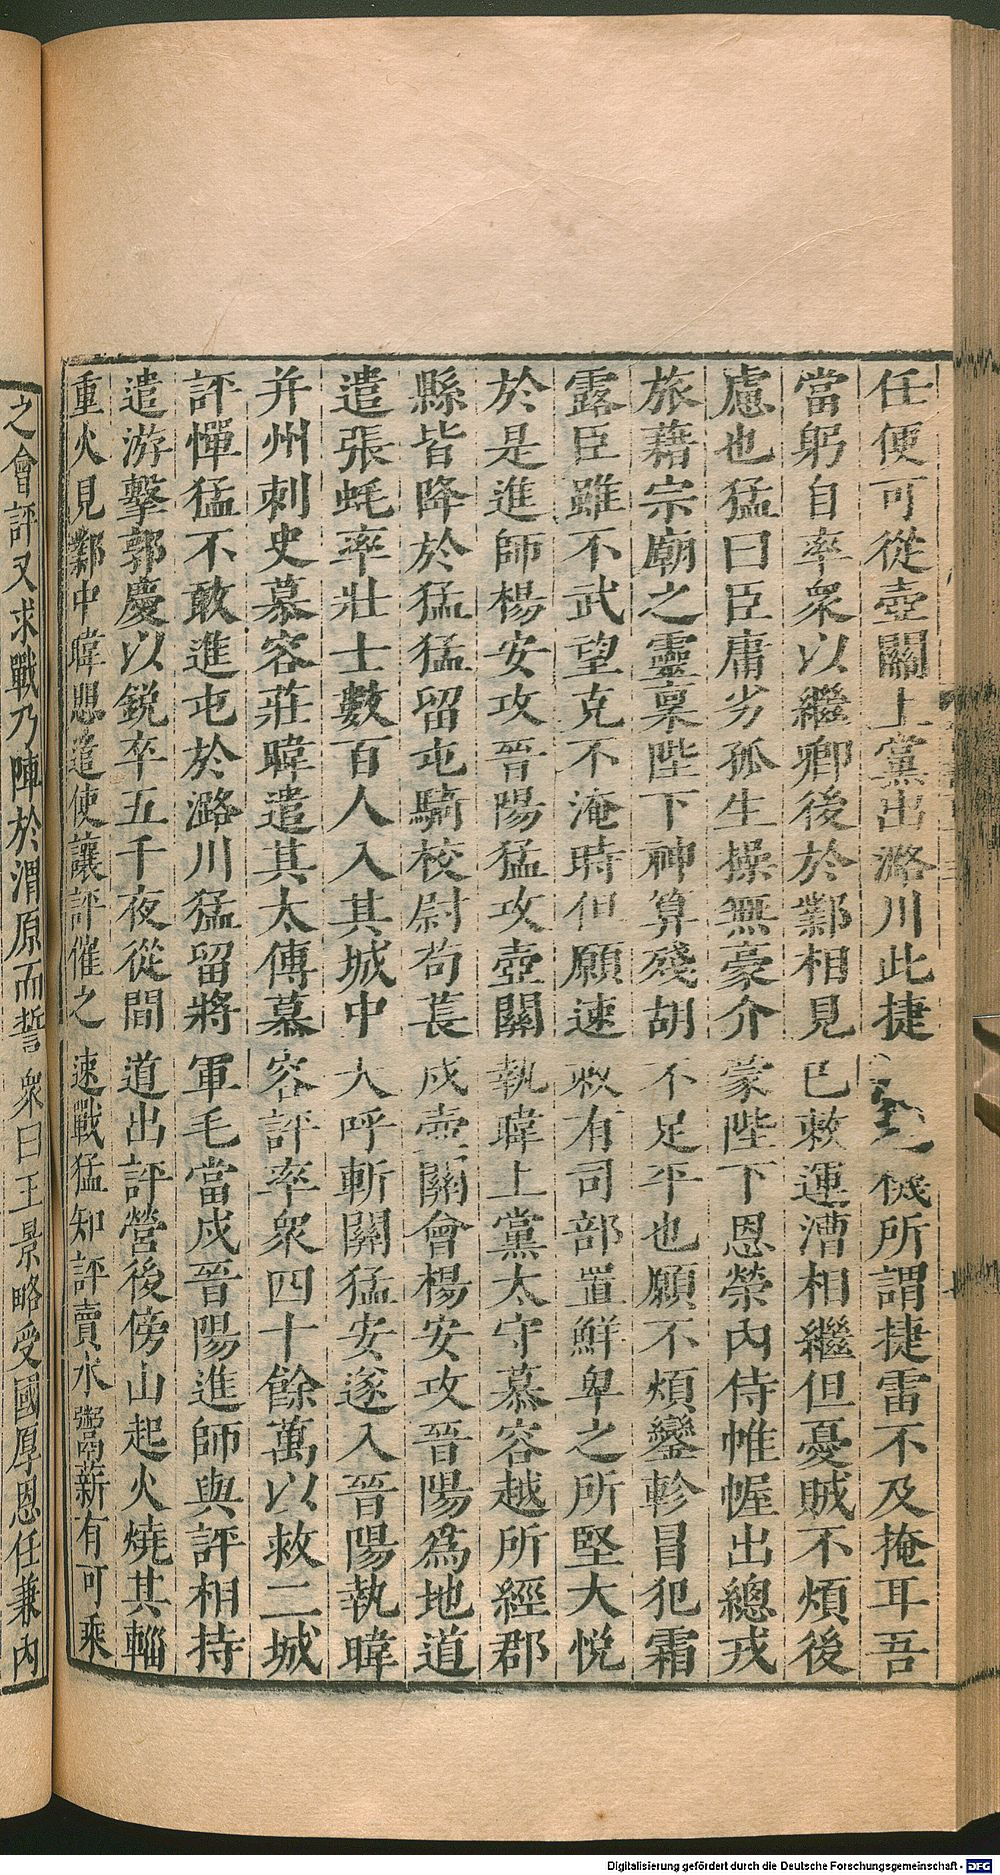 任便可從壺關上黨出潞川此捷機所謂捷雷不及掩耳吾
當躬自率衆以繼卿後於鄴相見已敕運漕相繼但憂賊不煩後
慮也猛曰臣庸劣孤生操無豪介蒙陛下恩榮內侍帷幄出總戎
旅藉宗廟之靈稟陛下神算殘胡不足平也願不煩鑾軫冒犯霜
露臣雖不武望克不淹時但願速敕有司部置鮮卑之所堅大悅
於是進師楊安攻晉陽猛攻壺關執暐上黨太守慕容越所經郡
縣皆降於猛猛留屯騎校尉苟萇戍壺關會楊安攻晉陽爲地道
遣張蚝率壯士數百人入其城中大呼斬關猛安遂入晉陽執暐
并州刺史慕容莊暐遣其太傅慕容評率衆四十餘萬以救二城
評憚猛不敢進屯於潞川猛留將軍毛當戍晉陽進師與評相持
遣游擊郭慶以銳卒五千夜從間道出評營後傍山起火燒其輜
重火見鄴中暐懼遣使讓評催之速戰猛知評賣水鬻薪有可乘
之會評又求戰乃陣於渭原而誓衆曰王景略受國厚恩任兼內
Digitalisierung gefördert durch die Deutsche Forschungsgemeinschaft - DFG